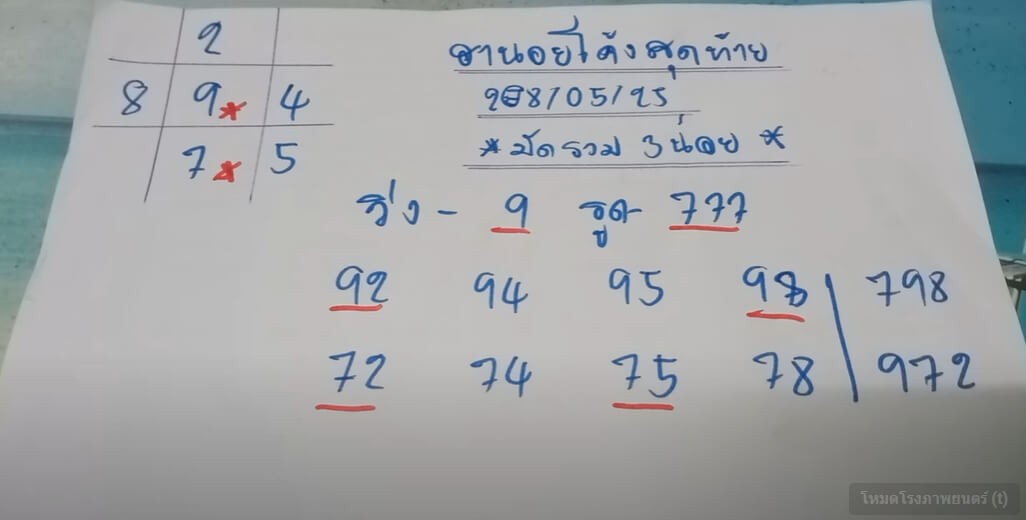 2
8 9* 4
7* 5
ฮานอยโค้งสุดท้าย
28/05/25
*มัดรวม 3 น่อย*
วิ่ง - 9 รูด 777
92 94 95 98 | 798
72 74 75 78 | 972
โหมดโรงภาพยนตร์ (t)